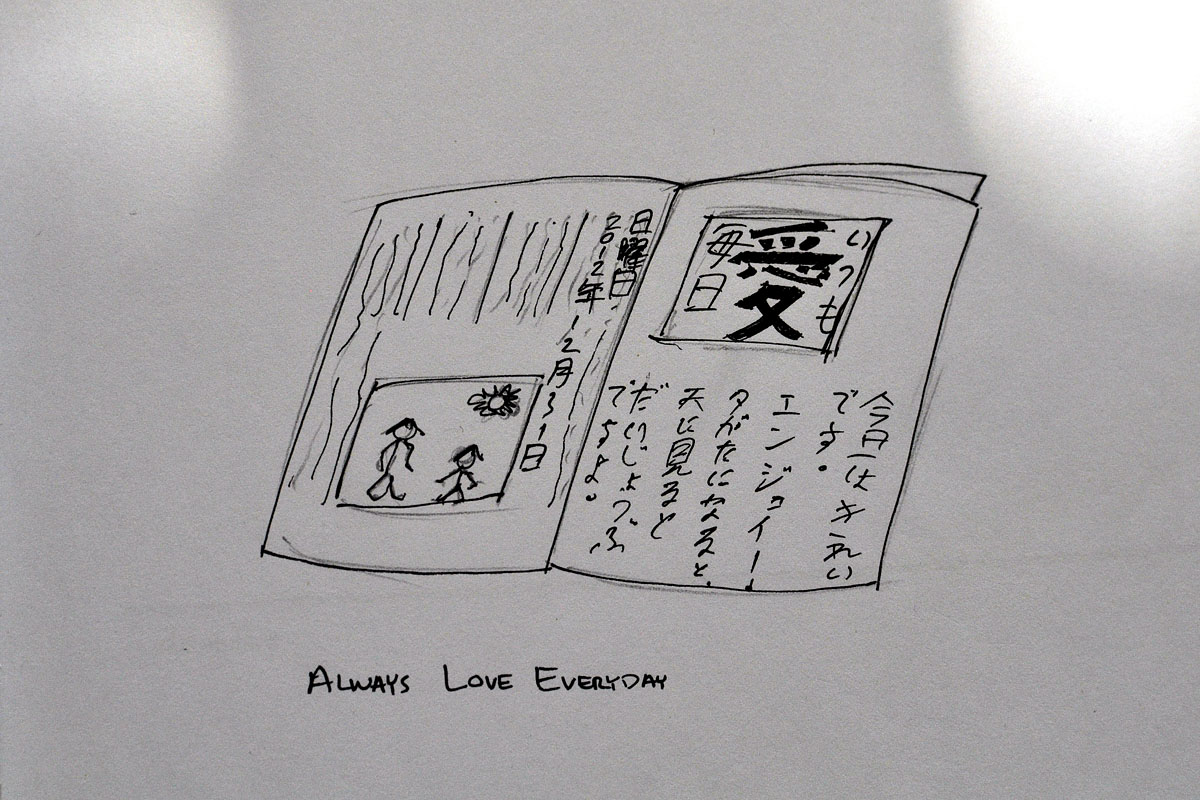 いつも
愛
毎日
今日はきれい
です。
エンジョイ!
夕がたになると、
天に見ると
だいじょうぶ
ですよ。
日曜日
2012年12月31日
ALWAYS LOVE EVERYDAY